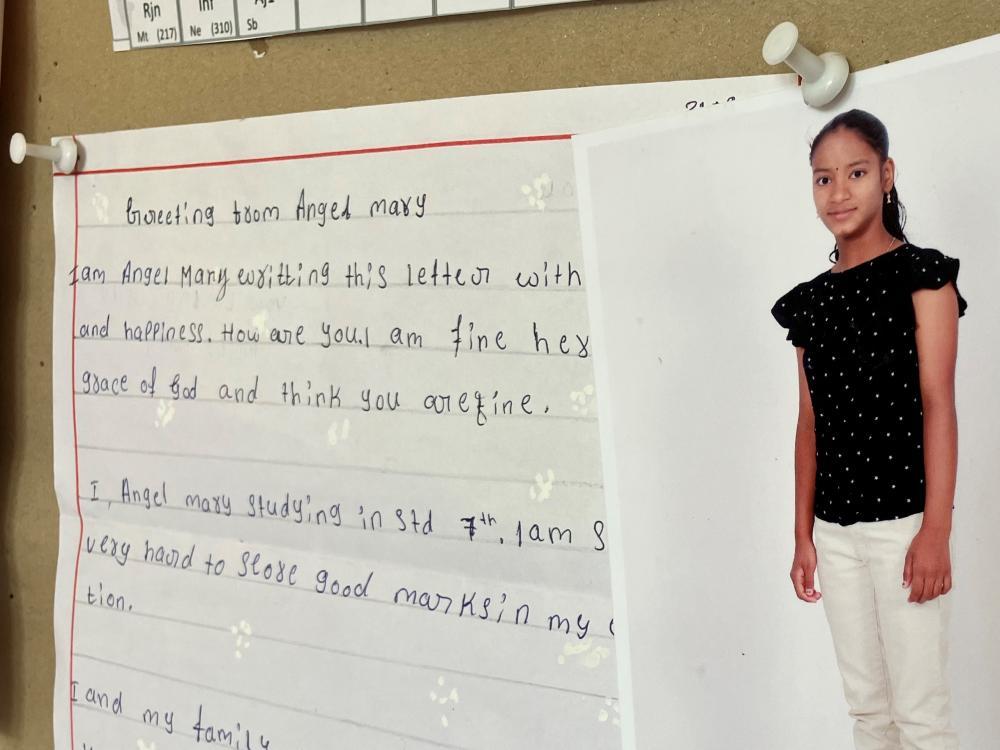 Rjn
Mt (217) Ne (310) Sb
Greeting from Angel mary
I am Angel Mary writting this letter with
and happiness. How are you. I am fine her
grace of God and think you are fine.
I, Angel mary studying in std 7th. I am s
very hard to score good marks in my
tion.
I and my family